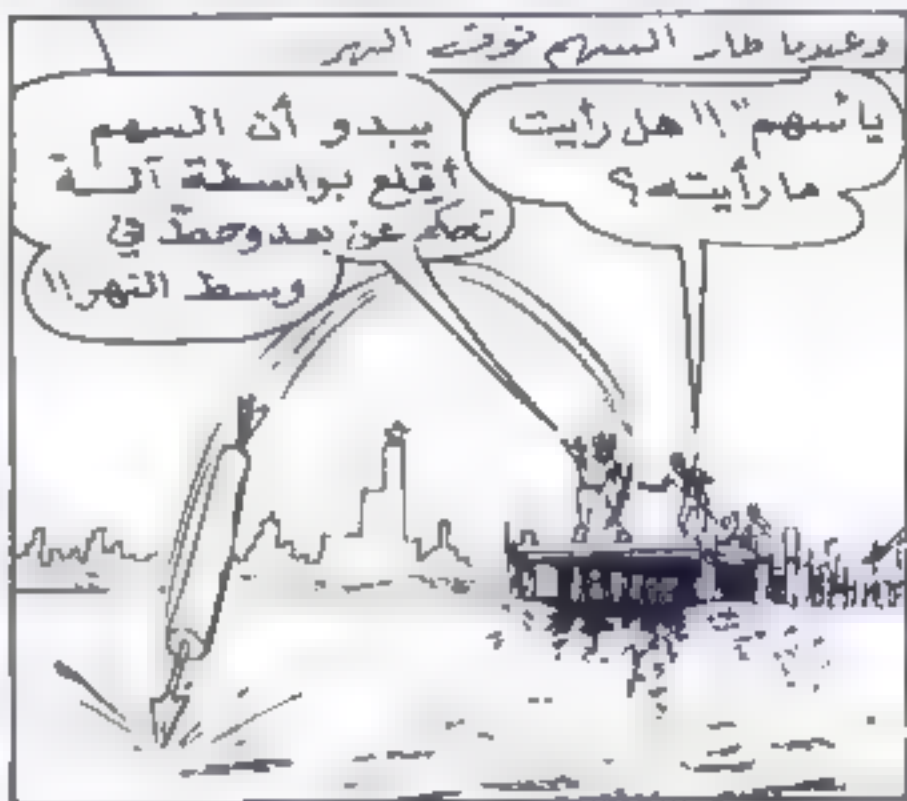 وعندما طار السهم فوق النهر
يا"سهم"!! هل رأيت
ما رأيته؟
يبدو أن السهم
أقلع بواسطة آلة
تحكم عن بعد وحطّ في
وسط النهر!!